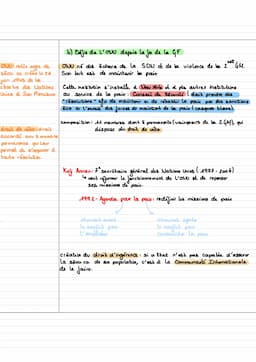 b) Celle de l'ONU depuis la fin de la GF
ONU est née des échecs de la SDN et de la violence de la 2nd GM.
Son but est de maintenir la paix
Cette institution s'installe à New York et a des autres institutions
au service de la paix : Conseil de Sécurité : doit prendre des
"résolutions" afin de maintenir ou de rétablir la paix par des sanctions
ou à l'envoi des forces de maintien de la paix (casques bleus).
composition : 15 membres dont 5 permanents (vainqueurs de la 2GM), qui
dispose du droit de véto.
ONU
juin 1945 de la
charte des Nations
Unies à San Francisco
droit de véto
accordé aux 5 membres
permanents qui leur
permet de s'opposer à
toute résolution.
Kofi Annan : 7e secrétaire général des Nations Unies (1997-2006)
↳ veut réformer le fonctionnement de l'ONU et de repenser
ses missions de paix.
1992 - Agenda pour la paix : redéfinir les missions de paix
intervenir avant
le conflit pour
l'éviter
intervenir après
le conflit pour
consolider la paix
création du droit d'ingérence : si un État n'est pas capable d'assurer
la sécurité de sa population, c'est à la Communauté Internationale
de le faire.